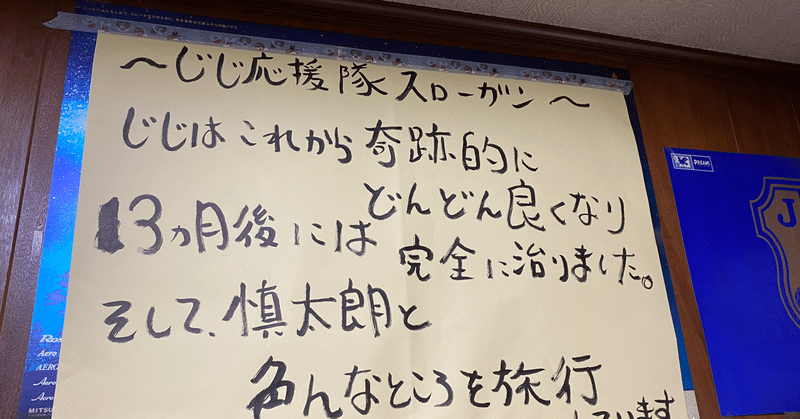 ～じじ応援隊スローガン～
じじはこれから奇跡的に
どんどん良くなり
13ヵ月後には
完全に治りました。
そして、慎太朗と
色んなところを旅行
しています
DREAM
J
Aero
AERO
Aero
MITSU